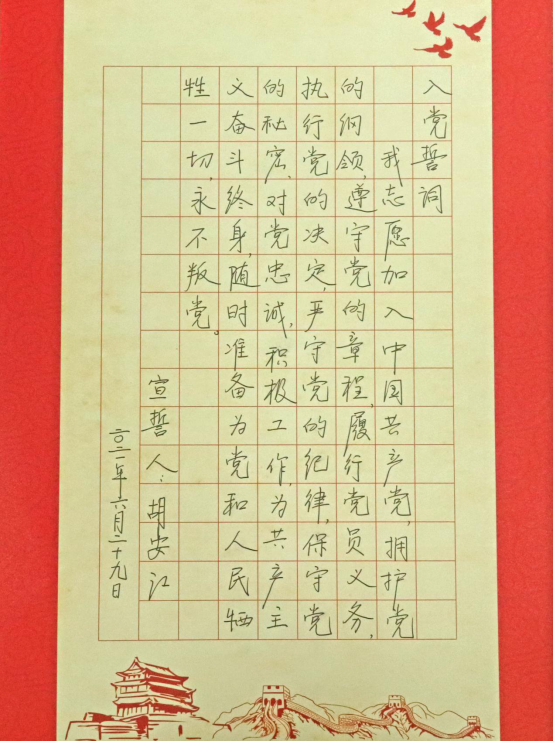 入党誓词
我志愿加入中国共产党,拥护党
的纲领,遵守党的章程,履行党员义务,
执行党的决定,严守党的纪律,保守党
的秘密,对党忠诚,积极工作,为共产主
义奋斗终身,随时准备为党和人民牺
牲一切,永不叛党。
宣誓人:胡安江
二〇二一年六月二十九日